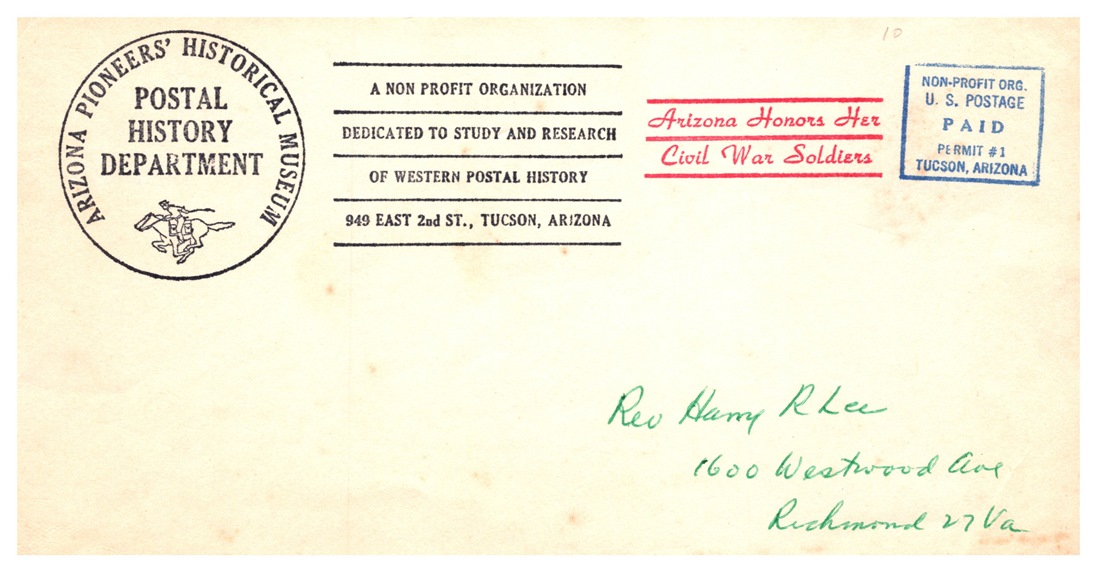 ARIZONA PIONEERS' HISTORICAL MUSEUM
POSTAL
HISTORY
DEPARTMENT
A NON PROFIT ORGANIZATION
DEDICATED TO STUDY AND RESEARCH
OF WESTERN POSTAL HISTORY
949 EAST 2nd ST., TUCSON, ARIZONA
Arizona Honors Her
Civil War Soldiers
10
NON-PROFIT ORG.
U. S. POSTAGE
PAID
PERMIT #1
TUCSON, ARIZONA
Rev Harry R Lee
1600 Westwood Ave
Richmond 27 Va